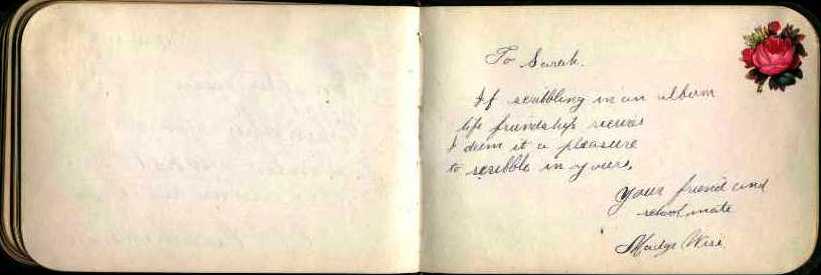 To Sarah.
If scribbling in an album
life friendship secures
I deem it a pleasure
to scribble in yours,
Your friend and
school mate
Wise